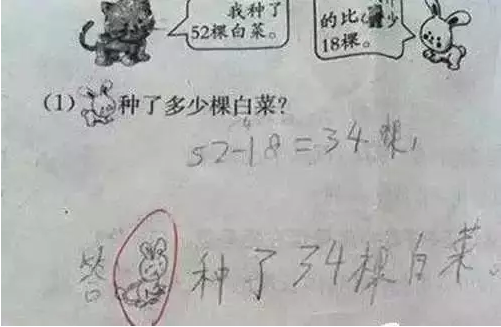 我种了
52棵白菜。
的比 少
18棵。
(1) 种了多少棵白菜?
52-18=34棵,
答 种了34棵白菜